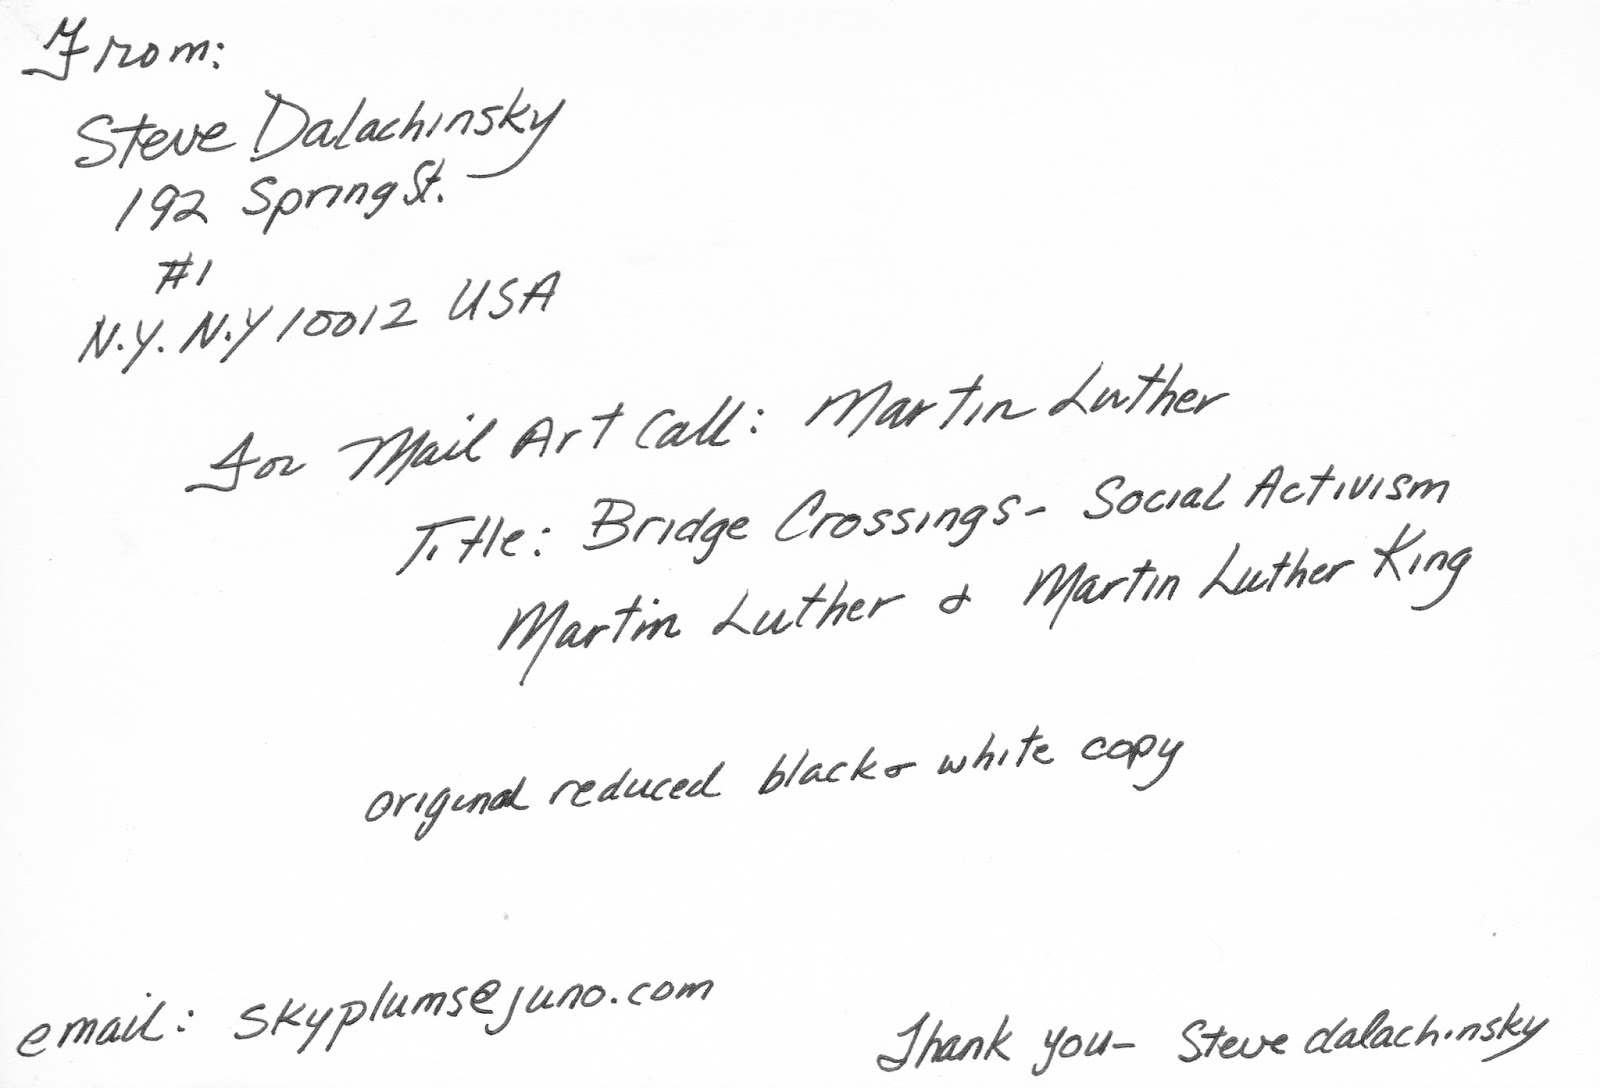 From:
Steve Dalachinsky
192 Spring St.
#1
N.Y. N.Y 10012 USA
for Mail Art Call: Martin Luther
Title: Bridge Crossings - Social Activism
Martin Luther & Martin Luther King
original reduced black & white copy
email: skyplums@juno.com
Thank you - Steve dalachinsky